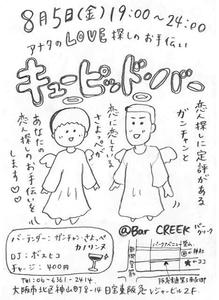 8月5日(金)19:00〜24:00
アナタのLOVE探しのお手伝い
キューピッド・バー
恋人探しに定評がある
ガンチャンと
恋に恋している
さよっぺが
あなたの
恋人探しのお手伝いを
します♡
@Bar CREEK
バーテンダー:ガンチャン・さよっぺ
カノリンヌ
DJ:ポスヒコ
チャージ:400円
パークアベニュー堂山
ココ
tel:06-6361-2414
大阪市北区神山町8-14日宝東阪急レジャービル2F